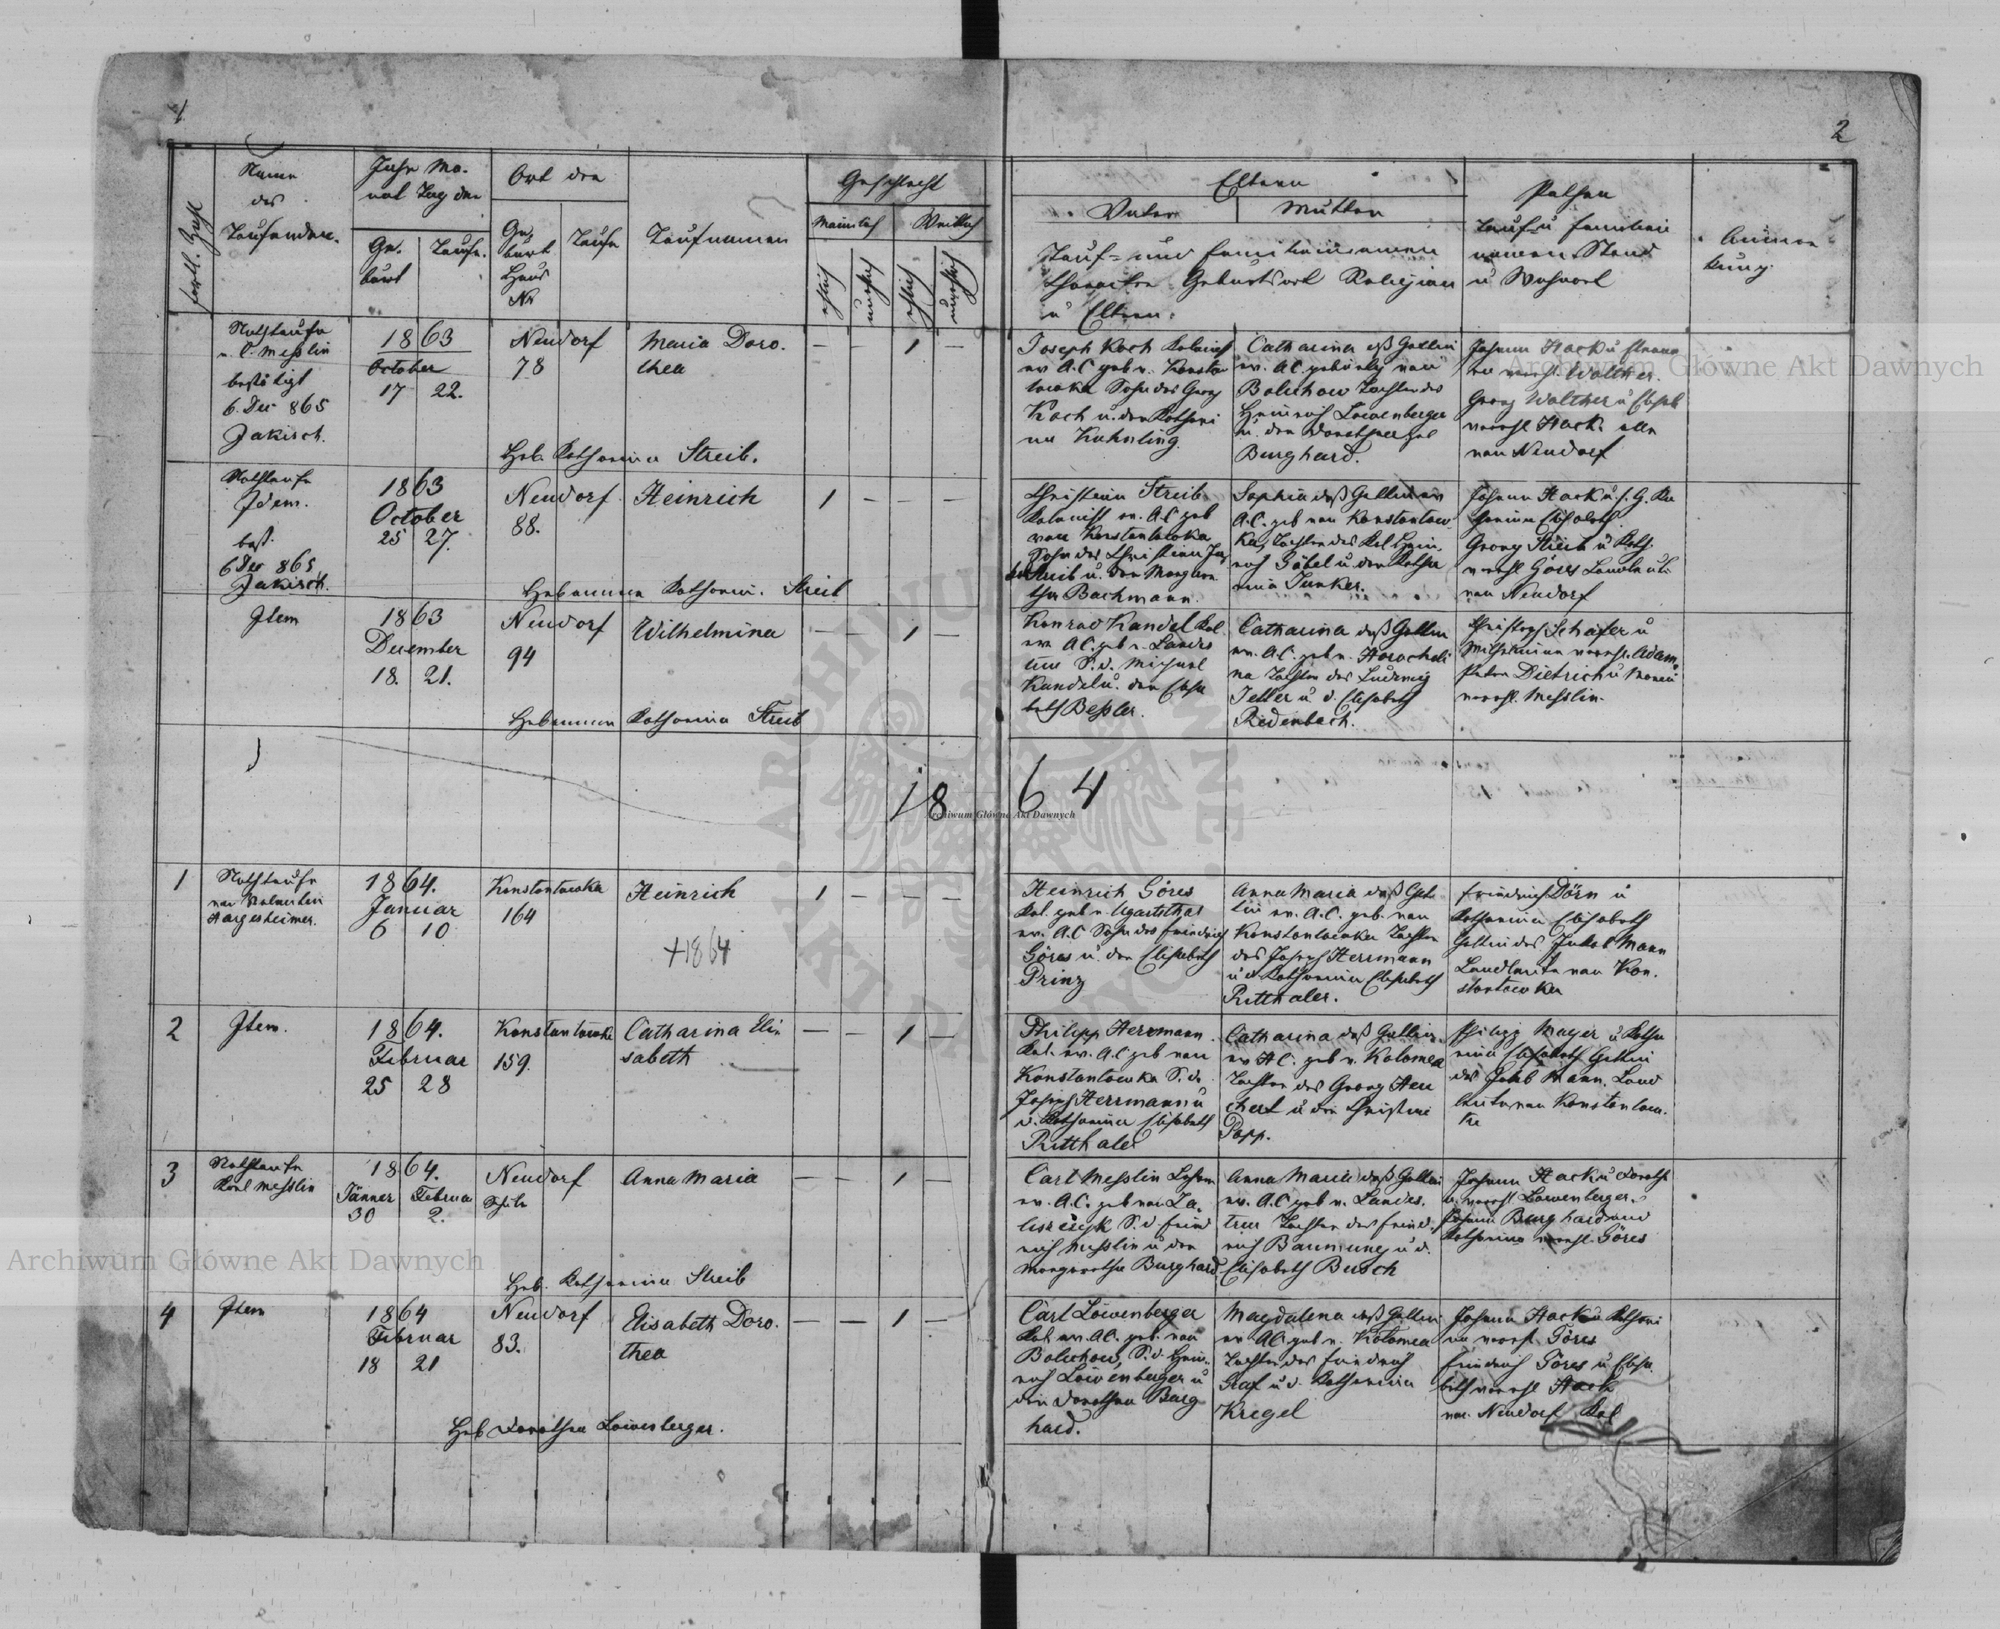 1
2
fortl. Zahl
Name
des
Taufenden.
Jahr Mo-
nat Tag der
Ge-
burt
Taufe.
Ort der
Ge-
burt
Haus
Nr
Taufe
Taufnamen
Geschlecht
Männlich
Weiblich
ehlich
unehlich
ehlich
unehlich
Eltern
Vater
Mutter
Tauf- und Familiennamen
Charakter Geburtsort Religion
u Eltern.
Pathen
Tauf- u Familien
namen Stand
u Wohnort
Anmer-
kung.
Nothtaufe
v. C. Messlin
bestätigt
6. Dec 865
Jakisch.
1863
October
17 22.
Neudorf
78
Maria Doro-
thea
— — 1 —
Heb. Katharina Streib.
Joseph Koch Kolonist
ev. A.C. geb v. Konstan
towka Sohn des Georg
Koch u. der Kathari
na Kuhnling
Catharina dess Gattin
ev. A.C. gebürtig von
Bolechow Tochter des
Heinrich Loewenberger
u. der Dorothea geb
Burghard.
Johann Hack u
verehl. Walther.
Georg Walther u Elisab
verehl Hack. alle
von Neudorf
Nothtaufe
Idem.
best.
6 Dec 865
Jakisch.
1863
October
25 27.
Neudorf
88.
Heinrich
1 — — —
Hebamme Katharin. Streib
Christian Streib
Kolonist ev. A.C. geb
von Konstantowka
Sohn des Christian
Streib u. der Margare
tha Bachmann.
Sophia dess Gattin ev
A.C. geb von Konstantow
ka, Tochter des Kol Hein-
rich Göbel u. der Katha
rina Junker.
Johann Hack u. s. G. Ka
tharina Elisabeth
Georg Streib u Kath.
verehl Göres
von Neudorf
Item
1863
December
18. 21.
Neudorf
94
Wilhelmina
— — 1 —
Hebamme Katharina Streib
Konrad Kandel Kol
ev. A.C. geb v. Landes
treu S. d. Michael
Kandel u. der Elisa
beth Bessler.
Catharina dess Gattin
ev. A.C. geb v. Horocholi
na Tochter des Ludwig
Jetter u d Elisabeth
Riedenbach.
Christoph Schäfer u
Wilhelmina verehl. Adam.
Peter Dietrich u
verehl. Messlin.
1864
1
Nothtaufe
von Valentin
Hargesheimer.
1864.
Januar
6 10
Konstantowka
164
Heinrich
+1864
1 — — —
Heinrich Göres
Kol. geb v. Ugartsthal
ev. A.C. Sohn des Friedrich
Göres u. der Elisabeth
Prinz
Anna Maria dess Gat-
tin ev. A.C. geb. von
Konstantowka Tochter
des Joseph Herrmann
u d Katharina Elisabeth
Ritthaler.
Friedrich Dörn u
Katharina Elisabeth
Gattin des Jakob Mann
Landleute von Kon-
stantowka
2
Item.
1864.
Februar
25 28
Konstantowka
159.
Catharina Eli-
sabeth
— — 1 —
Philipp Herrmann
Kol. ev. A.C. geb von
Konstantowka S. d.
Joseph Herrmann u
d. Katharina Elisabeth
Ritthaler
Catharina dess Gattin
ev A.C. geb v. Kolomea
Tochter des Georg Heu
chert u der Christine
Popp.
Philipp Mayer u Katha
rina Elisabeth Gattin
des Jakob Mann. Land
leute von Konstantow-
ka
3
Nothtaufe
Karl Messlin
1864.
Jänner Februa
30 2.
Neudorf
Schule
Anna Maria
— — 1 —
Heb. Katharina Streib
Carl Messlin Lehrer
ev. A.C. geb von Za-
leszczyk S. d. Fried
rich Messlin u der
Margaretha Burghard
Anna Maria dess Gattin
ev. A.C. geb v. Landes-
treu Tochter des Fried-
rich Baumung u d.
Elisabeth Busch
Johann Hack u Doroth
ea verehl Loewenberger.
Johann Burghard und
Katharina verehl. Göres
4
Item
1864
Februar
18 21
Neudorf
83.
Elisabeth Doro-
thea
— — 1 —
Heb Dorothea Löwenberger.
Carl Löwenberger
Kol. ev. A.C. geb. von
Bolechow, S. d. Hein-
rich Löwenberger u
der Dorothea Burg
hard.
Magdalena dess Gattin
ev A.C. geb v. Kolomea
Tochter des Friedrich
Graf u d. Katharina
Kregel
Johann Hack u Kathari
na verehl. Göres
Friedrich Göres u Elisa-
beth verehl Hack
von Neudorf Kol
Archiwum Główne Akt Dawnych
Archiwum Główne Akt Dawnych
Archiwum Główne Akt Dawnych